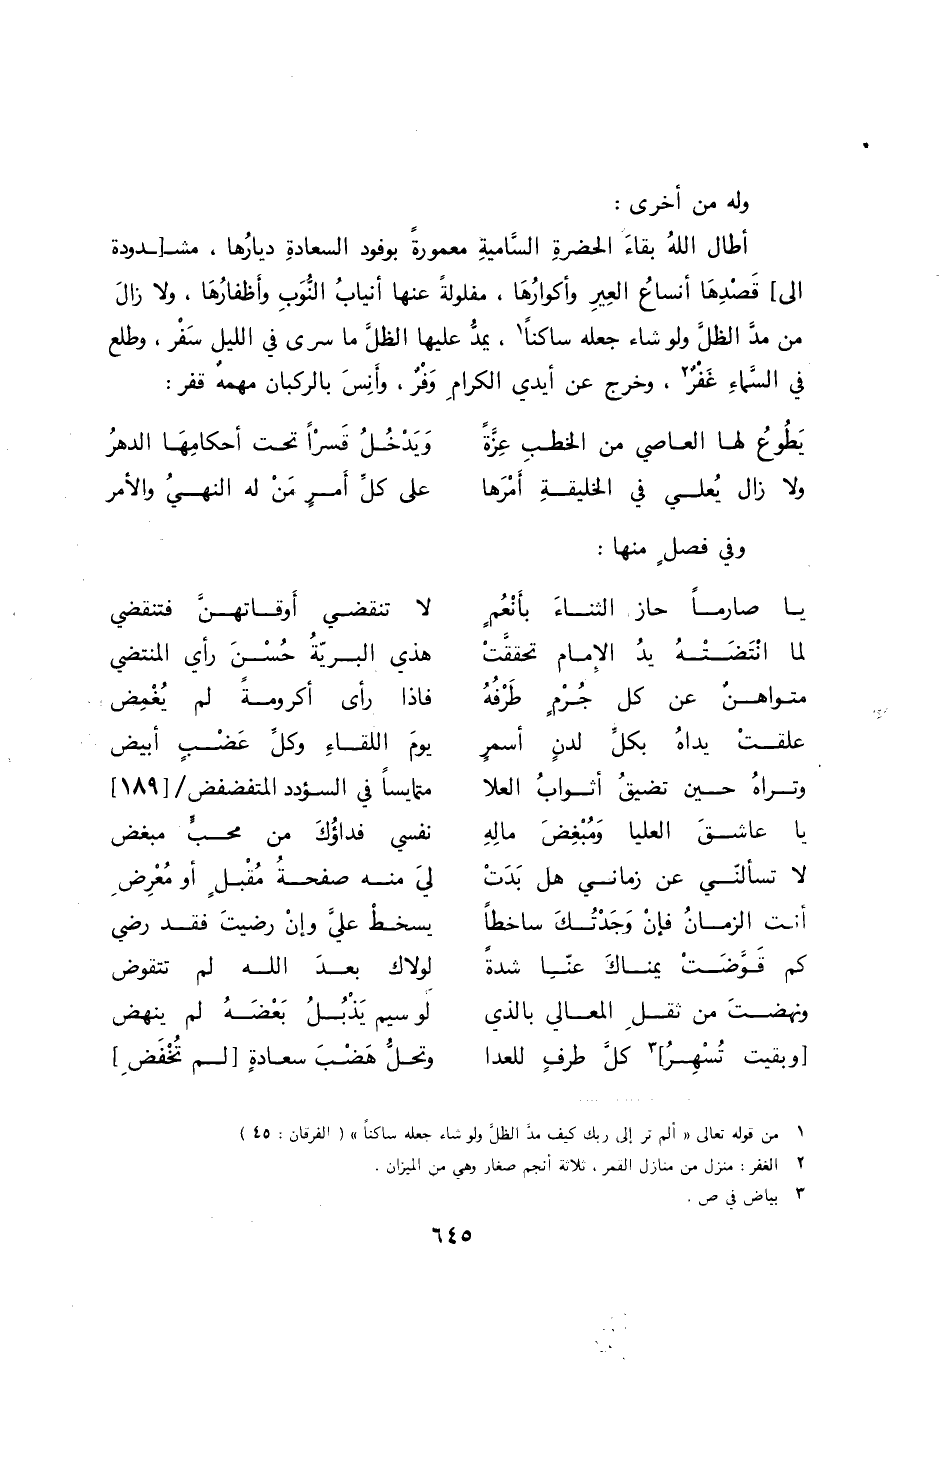 وله من أخرى :
أطال اللهُ بقاءَ الحضرةِ السَّاميةِ معمورةً بوفود السعادةِ ديارُها ، مشـ[ـدودة
الى] قَصْدِهَا أنساعُ العِيرِ وأكوارُهَا ، مفلولةً عنها أنيابُ النُّوَبِ وأَظفارُهَا ، ولا زالَ
من مدَّ الظلَّ ولو شاء جعله ساكناً١ ، يمدُّ عليها الظلَّ ما سرى في الليل سَفْر ، وطلع
في السَّماءِ غَفْرٌ٢ ، وخرج عن أيدي الكرامِ وَفْرٌ ، وأَنِسَ بالركبان مهمهٌ قفر :
يَطُوعُ لها العاصي من الخطبِ عِزَّةً وَيَدْخُلُ قَسراً تحت أحكامِهَا الدهرُ
ولا زال يُعلي في الخليقةِ أَمْرَها على كلِّ أمرٍ مَنْ له النهيُ والأمر
وفي فصلٍ منها :
يا صارماً حاز الثناءَ بأَنْعُمٍ لا تنقضي أوقاتهنَّ فتنقضي
لما انْتَضَتْهُ يدُ الإمام تحققَّتْ هذي البريّةُ حُسْنَ رأي المنتضي
متواهنٌ عن كل جُرْمٍ طَرْفُهُ فاذا رأى أكرومةً لم يُغْمِض
علقتْ يداهُ بكلِّ لدنٍ أسمرٍ يومَ اللقاءِ وكلِّ عَضْبٍ أبيض
وتراهُ حين تضيقُ أثوابُ العلا متمايساً في السؤدد المتفضفض/ [١٨٩]
يا عاشقَ العليا وَمُبْغِضَ مالِهِ نفسي فداؤُكَ من محبٍّ مبغض
لا تسألنّي عن زماني هل بَدَتْ ليَ منه صفحةُ مُقْبلٍ أو مُعْرِضِ
أنت الزمانُ فإنْ وَجَدْتُكَ ساخطاً يسخطْ عليَّ وإنْ رضيتَ فقد رضي
كم قَوَّضَتْ يمناكَ عنّيا شدةً لولاك بعدَ الله لم تتقوض
ونهضتَ من ثقلِ المعالي بالذي لو سيم يَذْبُلُ بَعْضَهُ لم ينهض
[وبقيت تُسْهِرُ]٣ كلَّ طرفٍ للعدا وتحلُّ هَضْبَ سعادةٍ [لم تُخْفَضِ]
١ من قوله تعالى « ألم تر إلى ربك كيف مدَّ الظلَّ ولو شاء جعله ساكناً » ( الفرقان : ٤٥ )
٢ الغفر : منزل من منازل القمر ، ثلاثة أنجم صغار وهي من الميزان .
٣ بياض في ص .
٦٤٥